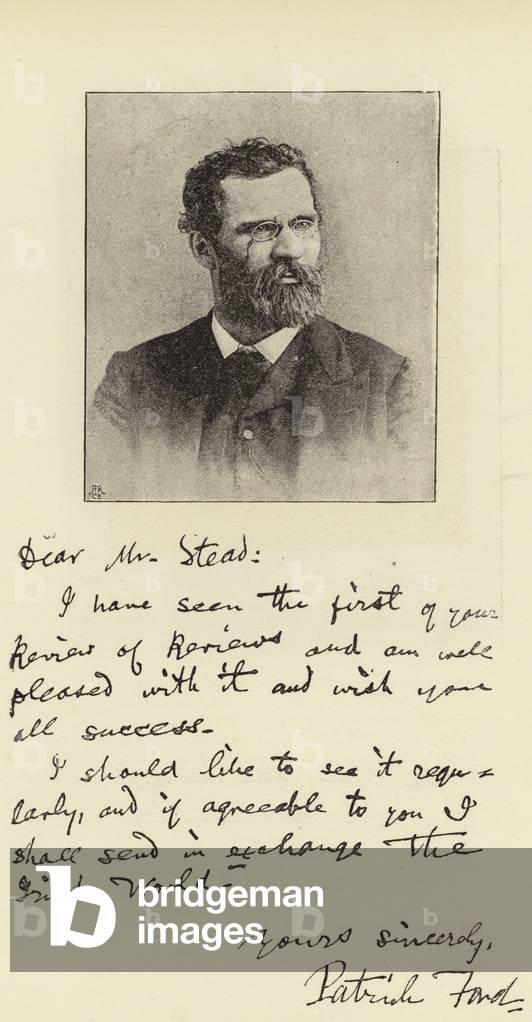 Dear Mr. Stead:
I have seen the first of your
Review of Reviews and am well
pleased with it and wish you
all success.
I should like to see it regu-
larly, and if agreeable to you I
shall send in exchange the
Irish World—
Yours sincerely,
Patrick Ford
b bridgeman
images